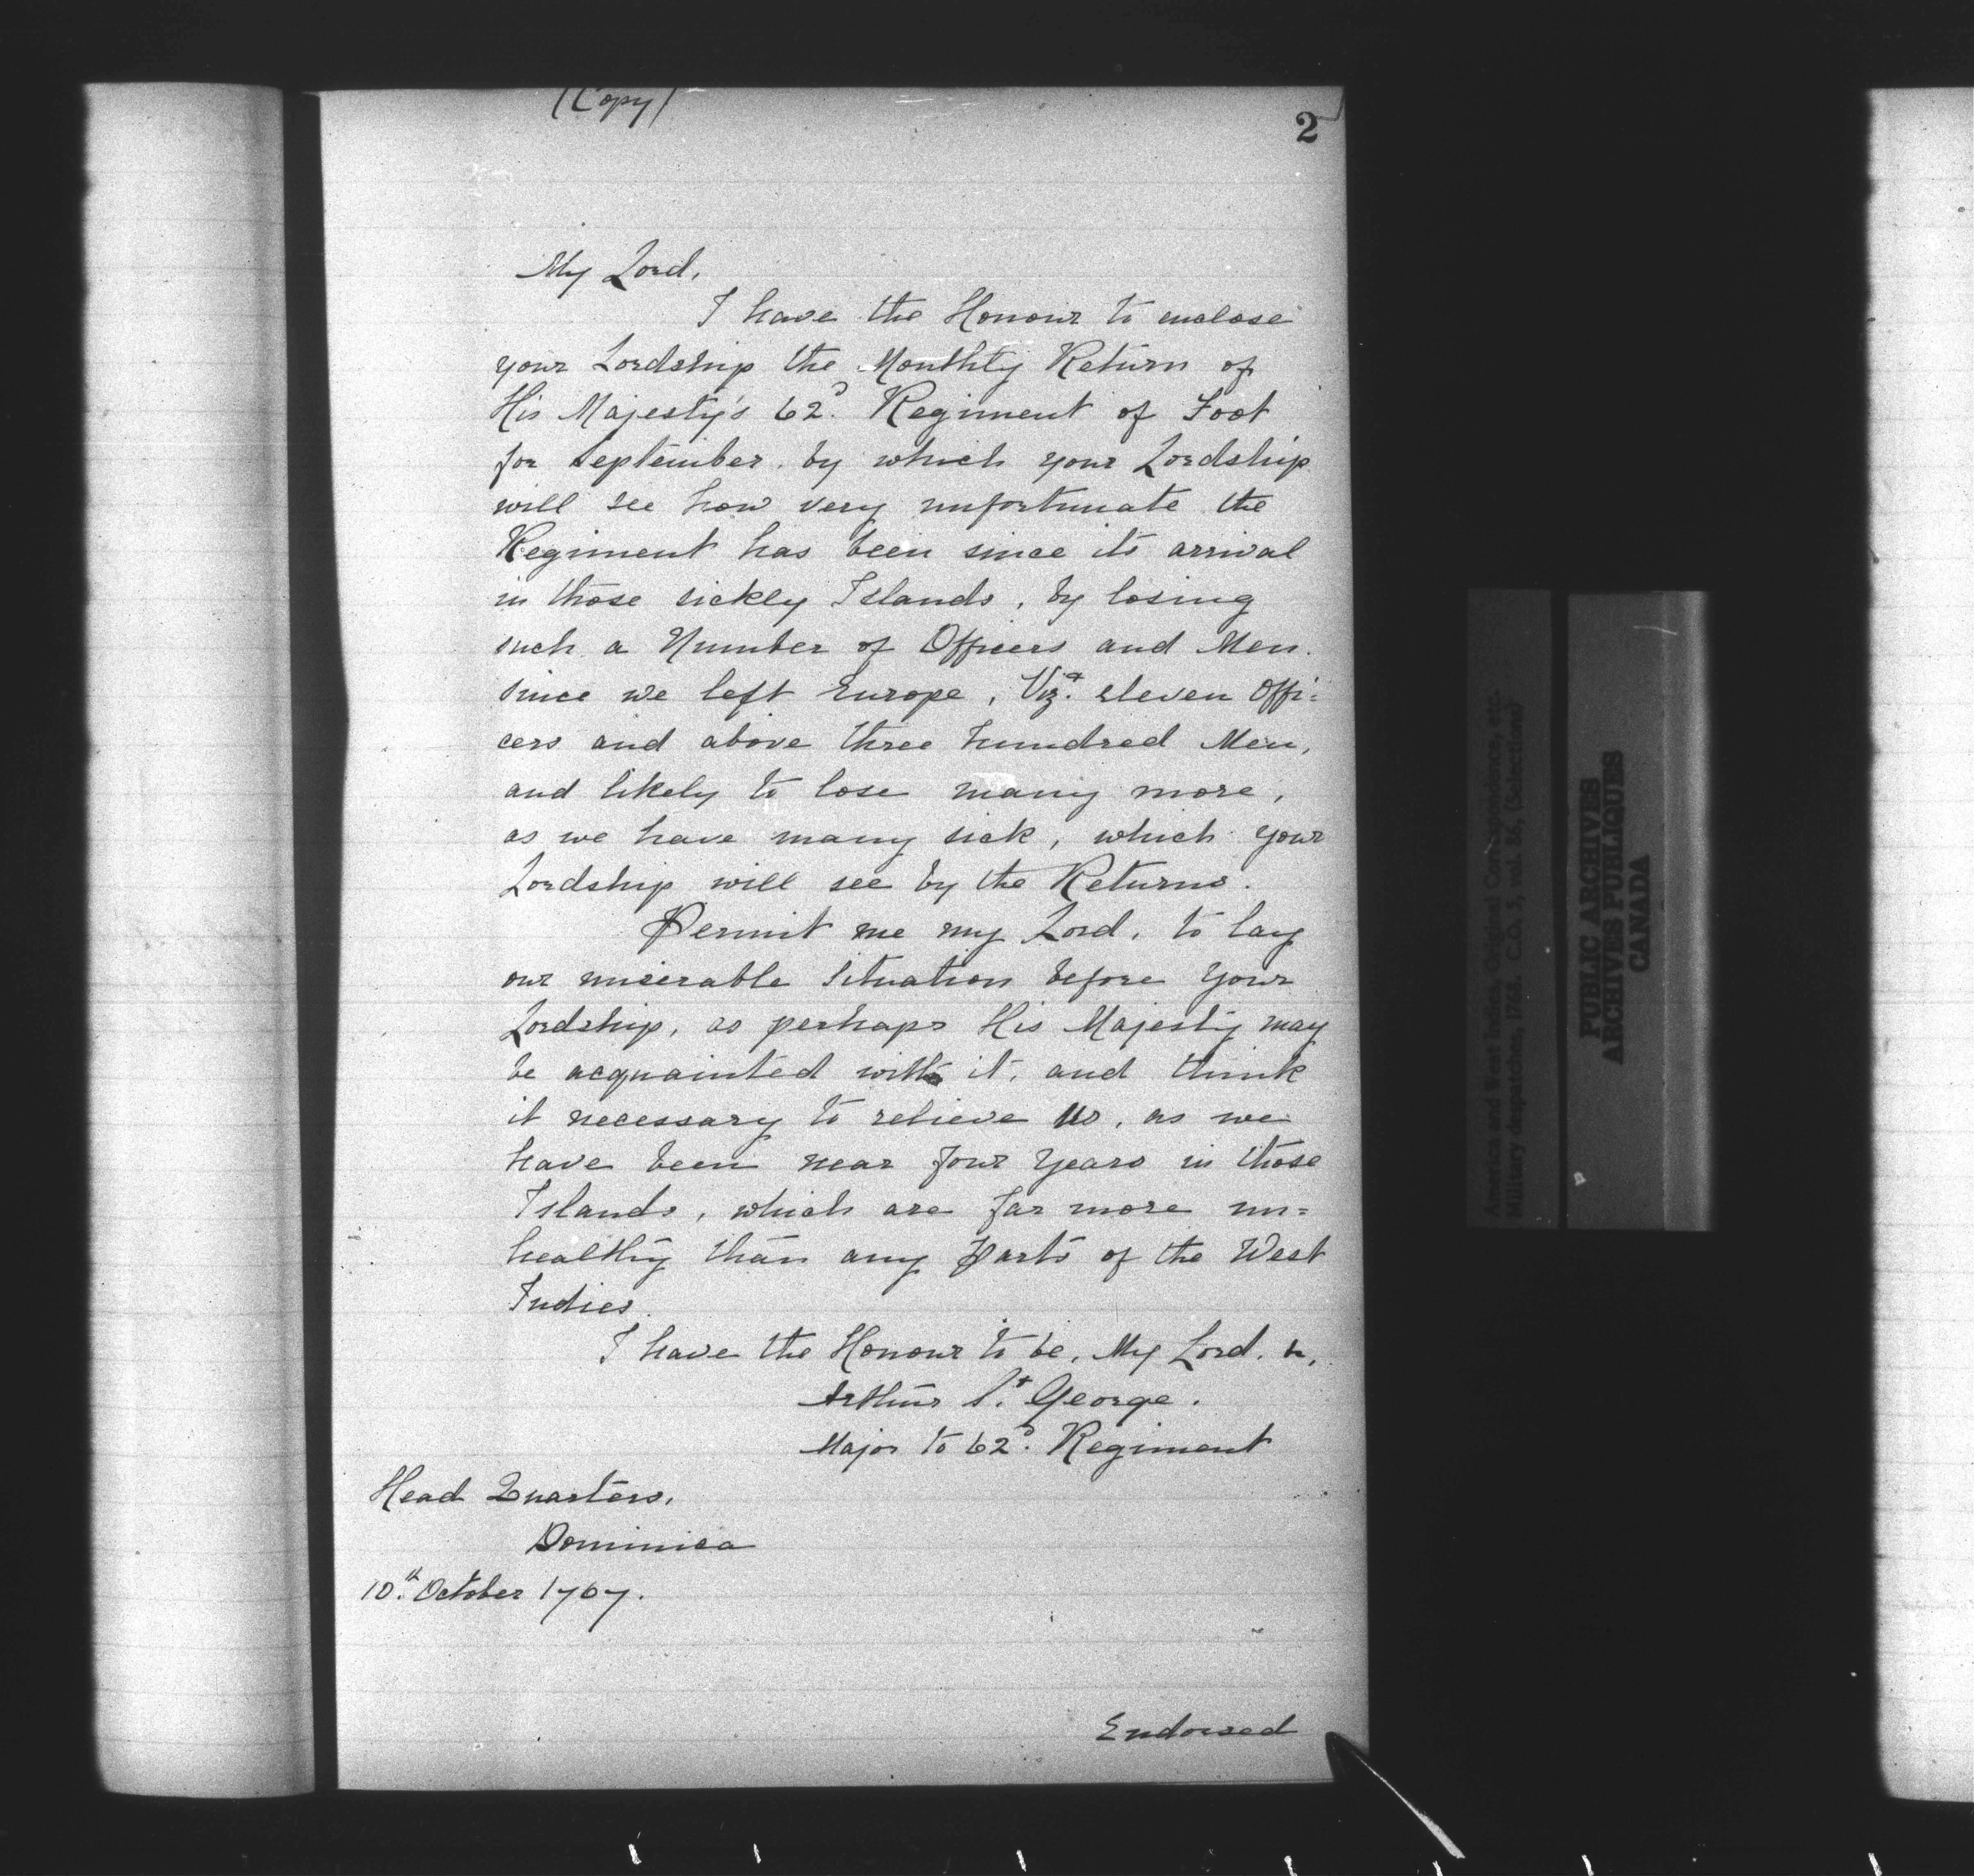 (Copy)
2
My Lord,
I have the Honour to enclose
your Lordship the Monthly Return of
His Majesty's 62ᵈ. Regiment of Foot
for September, by which your Lordship
will see how very unfortunate the
Regiment has been since its arrival
in those sickly Islands, by losing
such a Number of Officers and Men.
since we left Europe, Vizᵗ. eleven Offi:
cers and above three hundred Men,
and likely to lose many more,
as we have many sick, which your
Lordship will see by the Returns.
Permit me my Lord, to lay
our miserable Situation before Your
Lordship, as perhaps His Majesty may
be acquainted with it, and think
it necessary to relieve us, as we
have been near four Years in those
Islands, which are far more un=
healthy than any Parts of the West
Indies.
I have the Honour to be, My Lord, &,
Arthur Sᵗ. George.
Major to 62ᵈ. Regiment
Head Quarters,
Dominica
10ᵗʰ. October 1767.
Endorsed
America and West Indies, Original Correspondence, etc.
Military despatches, 1768. C.O. 5, vol. 86, (Selections)
PUBLIC ARCHIVES
ARCHIVES PUBLIQUES
CANADA